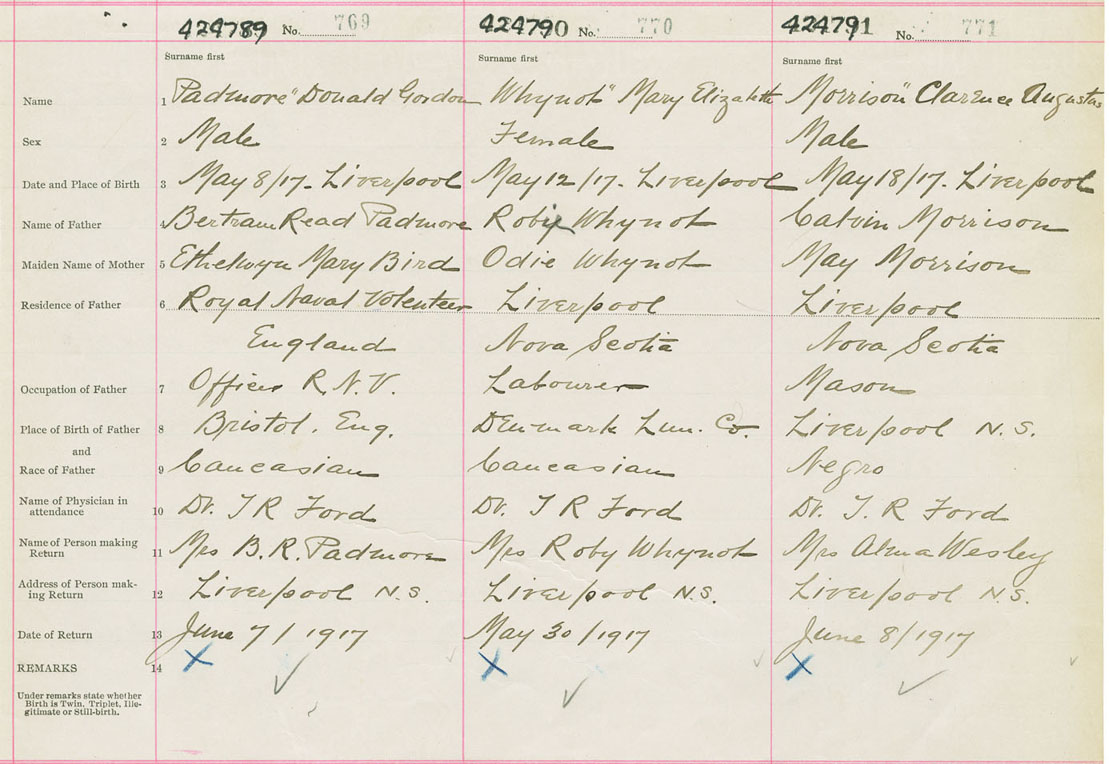 424789 No. 769 424790 No. 770 424791 No. 771
Surname first Surname first Surname first
Name 1 Padmore" Donald Gordon Whynot" Mary Elizabeth Morrison" Clarence Augustas
Sex 2 Male Female Male
Date and Place of Birth 3 May 8/17. Liverpool May 12/17. Liverpool May 18/17. Liverpool
Name of Father 4 Bertram Read Padmore Roby Whynot Calvin Morrison
Maiden Name of Mother 5 Ethelwyn Mary Bird Odie Whynot May Morrison
Residence of Father 6 Royal Naval Volenteer Liverpool Liverpool
England Nova Scotia Nova Scotia
Occupation of Father 7 Officer R.N.V. Labourer Mason
Place of Birth of Father 8 Bristol. Eng. Denmark Lun. Co. Liverpool N.S.
and
Race of Father 9 Caucasian Caucasian Negro
Name of Physician in
attendance 10 Dr. T R Ford Dr. T R Ford Dr. T. R Ford
Name of Person making
Return 11 Mrs B.R. Padmore Mrs Roby Whynot Mrs Alma Wesley
Address of Person mak-
ing Return 12 Liverpool N.S. Liverpool N.S. Liverpool N.S.
Date of Return 13 June 7/1917 May 30/1917 June 8/1917
REMARKS 14
Under remarks state whether
Birth is Twin, Triplet, Ille-
gitimate or Still-birth.